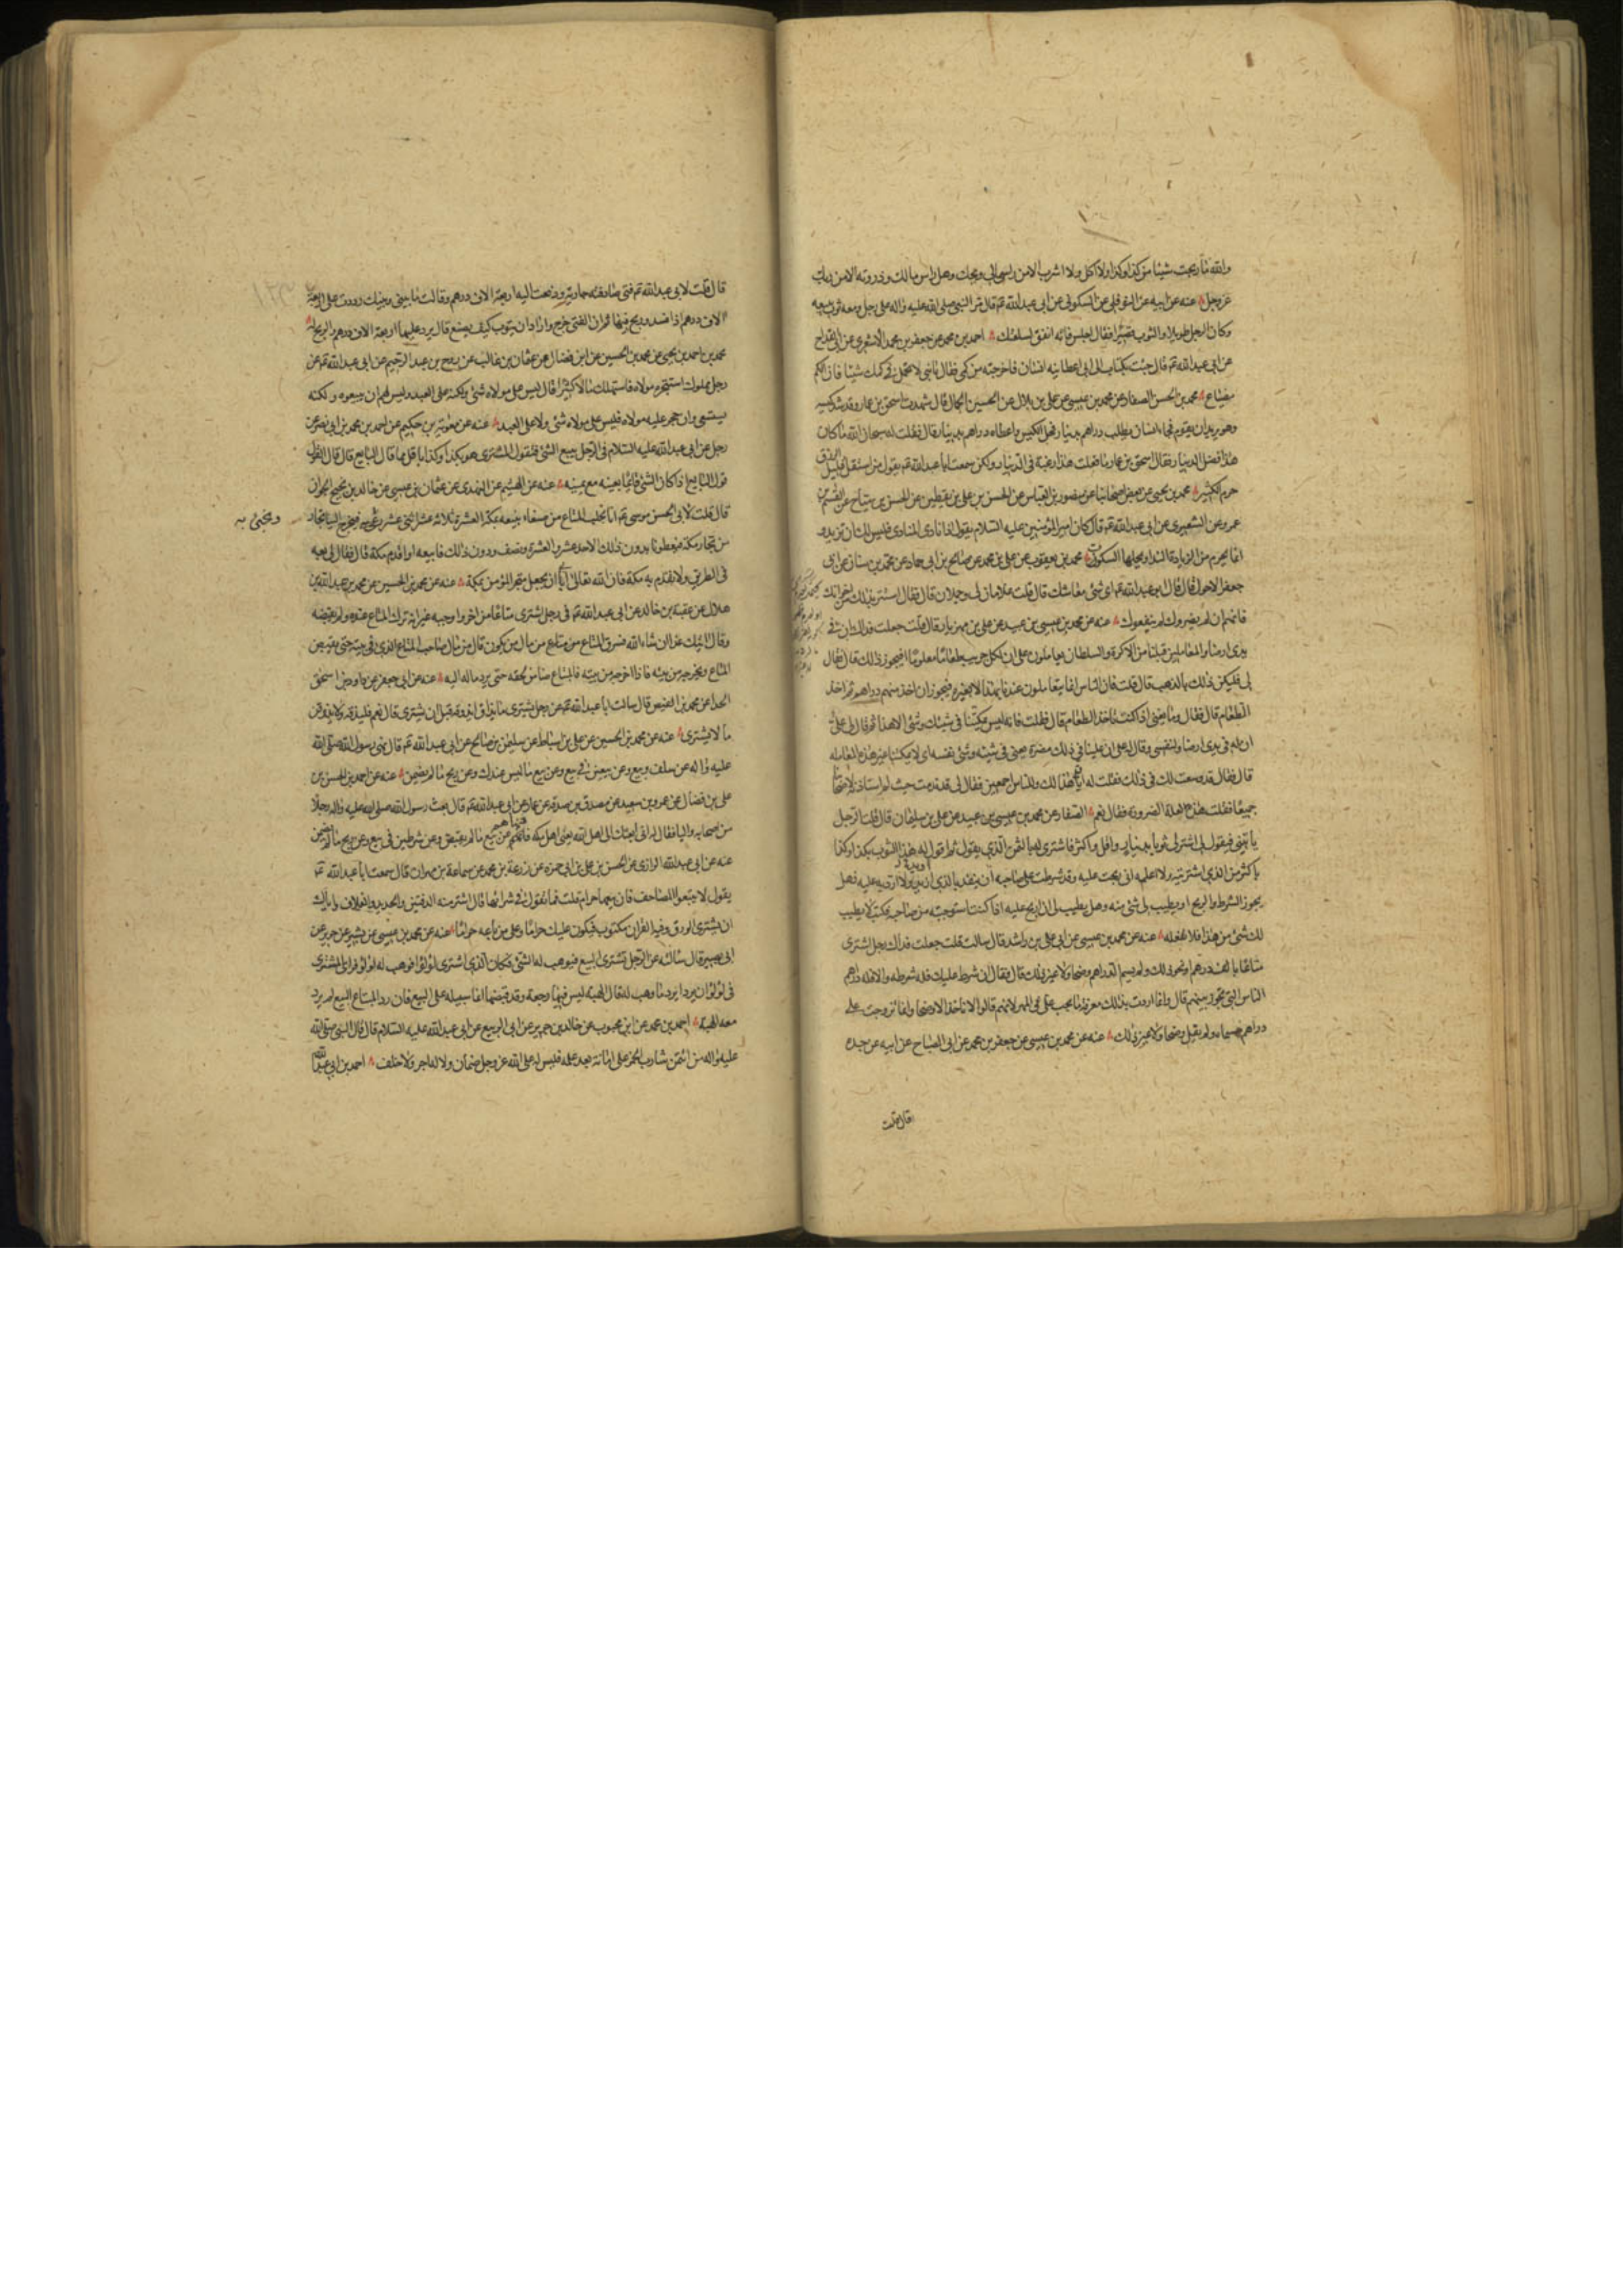 والله ما ربحت شيئا مذ كذا وكذا ولا اكل ولا اشرب الا من راس مالي ويحك وهل راس مالك وذروته الا من ربك
عز وجل عنه عن ابيه عن النوفلي عن السكوني عن ابي عبدالله ع قال مر النبي صلى الله عليه واله على رجل ومعه ثوب يبيعه
وكان الرجل طويلا والثوب قصيرا فقال اجلس فانه انفق لسلعتك احمد بن محمد عن جعفر بن محمد الاشعري عن ابن القداح
عن ابي عبدالله ع قال جئت بكتاب الى ابي اعطانيه انسان فاخرجته من كمي فقال يا بني لا تحمل في كمك شيئا فان الكم
مضياع محمد بن الحسن الصفار عن محمد بن عيسى عن علي بن بلال عن الحسين الجمال قال شهدت اسحق بن عمار وقد شد كيسه
وهو يريد ان يقوم فجاء انسان يطلب دراهم بدينار فحل الكيس واعطاه دراهم بدينار قال فقلت له سبحان الله ما كان
هذا فضل الدينار فقال اسحق بن عمار ما فعلت هذا رغبة في الدينار ولكن سمعت ابا عبدالله ع يقول من استقل قليل الرزق
حرم الكثير محمد بن يحيى عن بعض اصحابنا عن منصور بن العباس عن الحسن بن علي بن يقطين عن الحسين بن مياح عن
عمرو عن الشعيري عن ابي عبدالله ع قال كان امير المؤمنين عليه السلام يقول اذا نادى المنادي فليس لك ان تزيد و
انما يحرم من الزيادة النداء ويحلها السكوت محمد بن يعقوب عن علي بن محمد عن صالح بن ابي حماد عن محمد بن سنان عن ابي
جعفر الاحول قال قال ابو عبدالله ع اي شئ معاشك قال قلت غلامان لي وجملان قال فقال استتر بذلك من اخوانك
فانهم ان لم يضروك لم ينفعوك عنه عن محمد بن عيسى بن عبيد عن علي بن مهزيار قال قلت جعلت فداك ان في
يدي ارضا والمعاملين قبلنا من الاكرة والسلطان يعاملون على ان لكل جريب طعاما معلوما افيجوز ذلك قال فقال
لي فليكن ذلك بالذهب قال قلت فان الناس انما يتعاملون عندنا بهذا لا بغيره فيجوز ان اخذ منهم دراهم ثم اخذ
الطعام قال فقال وما يعني اذا كنت تاخذ الطعام قال فقلت فانه ليس يمكننا في شيئك وشئ الا هذا ثم قال لي على
ان له في يدي ارضا ولنفسي وقال له على ان علينا في ذلك مضرة يعني في شيئه وشئ نفسه اي لا يمكننا غير هذه المعاملة
قال فقال قد وسعت لك في ذلك فقلت له ان هذا لك وللناس اجمعين فقال لي قد ندمت حيث لم استاذنه لاصحابنا
جميعا فقلت هذه لعلة الضرورة فقال نعم الصفار عن محمد بن عيسى بن عبيد عن علي بن سليمان قال قلت الرجل
ياتيني فيقول لي اشتر لي ثوبا بدينار واقل واكثر فاشتري له بالثمن الذي يقول ثم اقول له هذا الثوب بكذا وكذا
باكثر من الذي اشتريته ولا اعلمه اني ربحت عليه وقد شرطت على صاحبه ان ينقد بالذي اريد والا ارده عليه فهل
يجوز الشرط والربح او يطيب لي شئ منه وهل يطيب لي ان اربح عليه اذا كنت استوجبته من صاحبه فكتب لا يطيب
لك شئ من هذا فلا تفعله عنه عن محمد بن عيسى عن ابي علي بن راشد قال سالته قلت جعلت فداك رجل اشترى
متاعا بالف درهم او نحو ذلك ولم يسم الدراهم وضحا ولا غير ذلك قال فقال ان شرط عليك فله شرطه والا فله دراهم
الناس التي تجوز بينهم قال وانما اردت بذلك معرفة ما يجب علي في المهر لانهم قالوا لا ناخذ الا وضحا وانما تزوجت على
دراهم مسماة ولم نقل وضحا ولا غير ذلك عنه عن محمد بن عيسى عن جعفر بن محمد عن ابي الصباح عن ابيه عن جده
قال قلت
قال قلت لابي عبدالله ع فتى صادقته جارية ودفعت اليه اربعة الاف درهم وقالت له اذا فسد بيني وبينك رددت على اربعة
الاف درهم اذا فسد وربح فيها ثم ان الفتى خرج واراد ان يتوب كيف يصنع قال يرد عليها اربعة الاف درهم والربح له
محمد بن احمد بن يحيى عن محمد بن الحسين عن ابن فضال عن عثمان بن غالب عن روح بن عبد الرحيم عن ابي عبدالله ع عن
رجل مملوك استتجره مولاه فاستهلك مالا كثيرا قال ليس على مولاه شئ ولكنه على العبد وليس لهم ان يبيعوه ولكنه
يستسعى وان حجر عليه مولاه فليس على مولاه شئ ولا على العبد عنه عن معوية بن حكيم عن احمد بن محمد بن ابي نصر عن
رجل عن ابي عبدالله عليه السلام في الرجل يبيع الشئ فيقول المشتري هو بكذا وكذا باقل مما قال البايع قال قال القول
قول البايع اذا كان الشئ قائما بعينه مع يمينه عنه عن الهيثم عن النهدي عن عثمان بن عيسى عن خالد بن نجيح الجوان
قال قلت لابي الحسن موسى ع انا نجلب المتاع من صنعاء نبيعه بمكة العشرة ثلاثة عشر اثنى عشر ونجئ به فيخرج الينا تجار
ونجئ به
من تجار مكة فيعطونا بدون ذلك الاحد عشر والعشرة ونصف ودون ذلك فابيعه او اقدم مكة قال فقال لي بعه
في الطريق ولا تقدم به مكة فان الله تعالى ابى ان يجعل متجر المؤمن بمكة عنه عن محمد بن الحسين عن محمد بن عبدالله بن
هلال عن عقبة بن خالد عن ابي عبدالله ع في رجل اشترى متاعا من اخر واوجبه غير انه ترك المتاع عنده ولم يقبضه
وقال اتيك غدا ان شاء الله فسرق المتاع من مال من يكون قال من مال صاحب المتاع الذي في بيته حتى يقبض
المتاع ويخرجه من بيته فاذا اخرجه من بيته فالمبتاع ضامن لحقه حتى يرد ماله اليه عنه عن ابي جعفر عن داود بن اسحق
الحذاء عن محمد بن الفيض قال سالت ابا عبدالله ع عن رجل يشتري ما يذاق ايذوقه قبل ان يشتري قال نعم فليذقه ولا يذوقن
ما لا يشترى عنه عن محمد بن الحسين عن علي بن اسباط عن سليمن بن صالح عن ابي عبدالله ع قال نهى رسول الله صلى الله
عليه واله عن سلف وبيع وعن بيعين في بيع وعن بيع ما ليس عندك وعن ربح ما لم يضمن عنه عن احمد بن الحسن بن
علي بن فضال عن عمرو بن سعيد عن مصدق بن صدقة عن عمار عن ابي عبدالله ع قال بعث رسول الله صلى الله عليه واله رجلا
من اصحابه واليا فقال له اني بعثتك الى اهل الله يعني اهل مكة فانههم عن بيع ما لم يقبض وعن شرطين في بيع وعن ربح ما لم يضمن
عنه عن ابي عبدالله الرازي عن الحسن بن علي بن ابي حمزة عن زرعة بن محمد عن سماعة بن مهران قال سمعت ابا عبدالله ع
يقول لا تبيعوا المصاحف فان بيعها حرام قلت فما تقول في شرائها قال اشتر منه الدفتين والحديد والغلاف واياك
ان تشتري الورق وفيه القران مكتوب فيكون عليك حراما وعلى من باعه حراما عنه عن محمد بن عيسى عن بشير عن حريز عن
ابي بصير قال سالته عن الرجل يشتري البيع فيوهب له الشئ فكان الذي اشترى لؤلؤا فوهب له لؤلؤ فراى المشتري
في لؤلؤ ان يرد ايرد ما وهب له قال الهبة ليس فيها رجعة وقد قبضها انما سبيله على البيع فان رد المبتاع البيع لم يرد
معه الهبة احمد بن محمد عن ابن محبوب عن خالد بن جرير عن ابي الربيع عن ابي عبدالله عليه السلام قال قال النبي صلى الله
عليه واله من ائتمن شارب الخمر على امانة بعد علمه فليس له على الله عز وجل ضمان ولا له اجر ولا خلف احمد بن ابي عبدالله